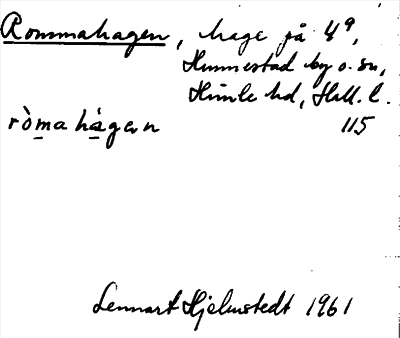 Rommahagen, hage på 4⁹,
Hunnestad by o. sn,
Himle hd, Hall. l.
ròmahágen 115
Lennart Hjelmstedt 1961